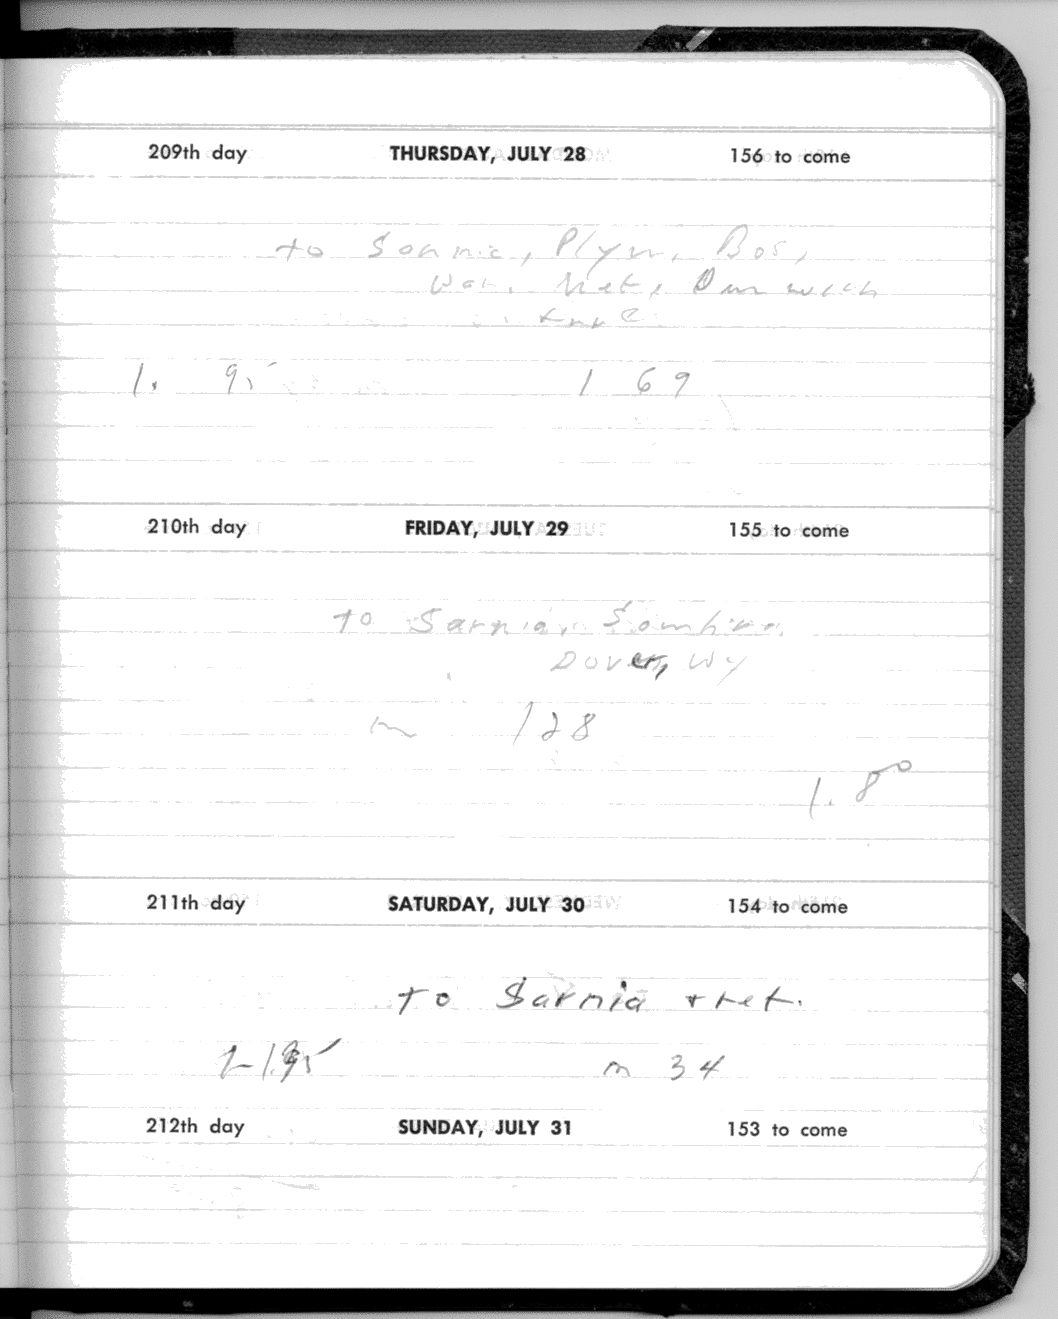 209th day THURSDAY, JULY 28 156 to come
to Sarnia, Plym, Bos,
War. Met,
1. 95 1 69
210th day FRIDAY, JULY 29 155 to come
to Sarnia, Sombra,
Dover, Wy
m 128
1.80
211th day SATURDAY, JULY 30 154 to come
to Sarnia + ret.
m 34
212th day SUNDAY, JULY 31 153 to come